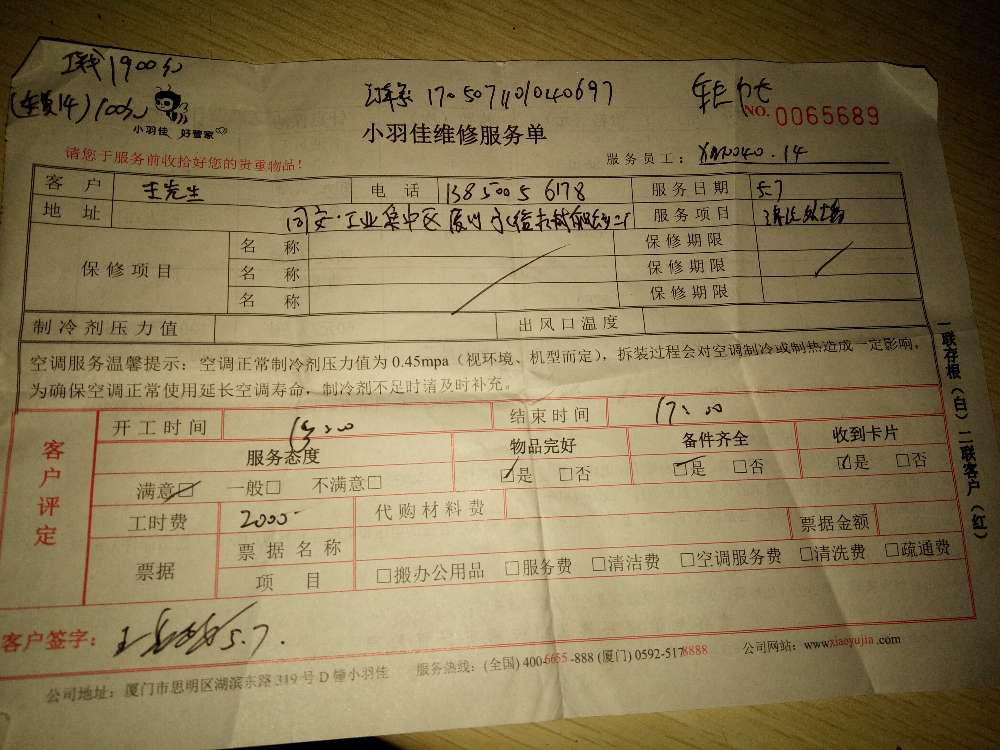 1900
100
1705071101040697
小羽佳 好管家
NO. 0065689
小羽佳维修服务单
请您于服务前收拾好您的贵重物品！
服务员工：
客户 王先生 电话 13850056178 服务日期 5.7
地址 同安·工业集中区厦门 服务项目
保修项目
名称 保修期限
名称 保修期限
名称 保修期限
制冷剂压力值 出风口温度
空调服务温馨提示：空调正常制冷剂压力值为0.45mpa（视环境、机型而定），拆装过程会对空调制冷或制热造成一定影响，
为确保空调正常使用延长空调寿命，制冷剂不足时请及时补充。
一联存根（白）二联客户（红）
客户评定
开工时间 结束时间 17:00
服务态度 物品完好 备件齐全 收到卡片
满意□ 一般□ 不满意□ □是 □否 □是 □否 □是 □否
工时费 2000- 代购材料费
票据 票据名称 票据金额
项目 □搬办公用品 □服务费 □清洁费 □空调服务费 □清洗费 □疏通费
客户签字： 5.7.
公司地址：厦门市思明区湖滨东路319号D幢小羽佳 服务热线：(全国) 400-6655-888 (厦门) 0592-5178888 公司网站：www.xiaoyujia.com